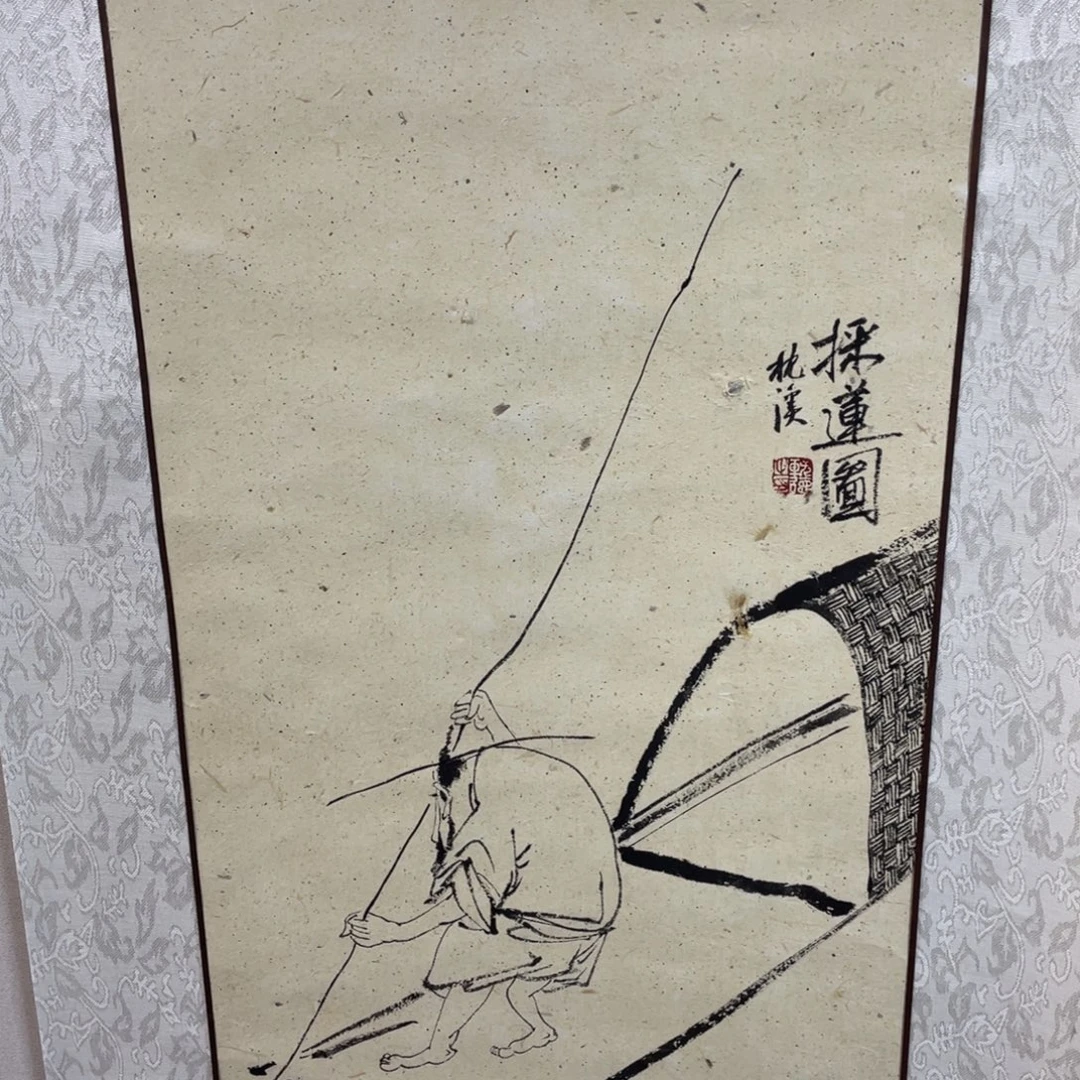 採蓮圖
枕溪